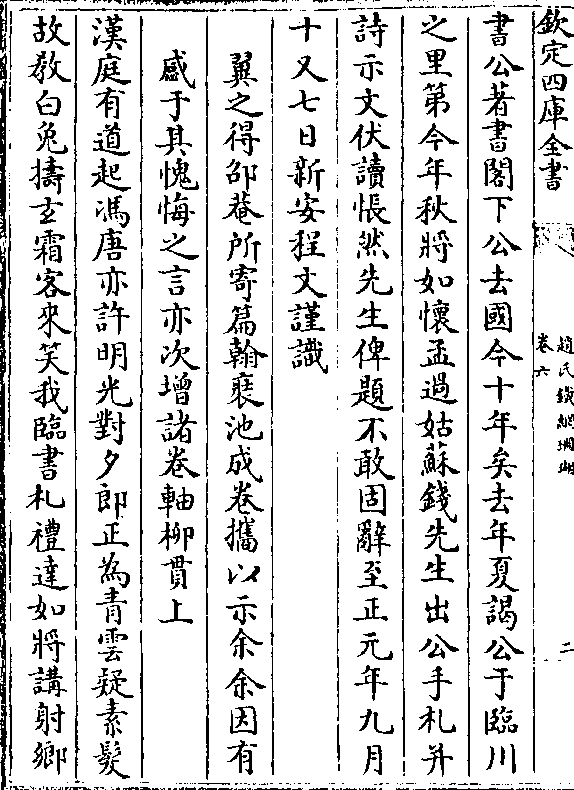 欽定四庫全書
趙氏鐵網珊瑚
卷六
二
書公著書閣下公去國今十年矣去年夏謁公于臨川
之里第今年秋將如懷孟過姑蘇錢先生出公手札并
詩示文伏讀悵然先生俾題不敢固辭至正元年九月
十又七日新安程文謹識
翼之得邵菴所寄篇翰裒池成卷攜以示余余因有
感于其愧悔之言亦次增諸卷軸柳貫上
漢庭有道起馮唐亦許明光對夕郎正為青雲疑素髮
故教白兔擣玄霜客來笑我臨書札禮達如將講射鄉